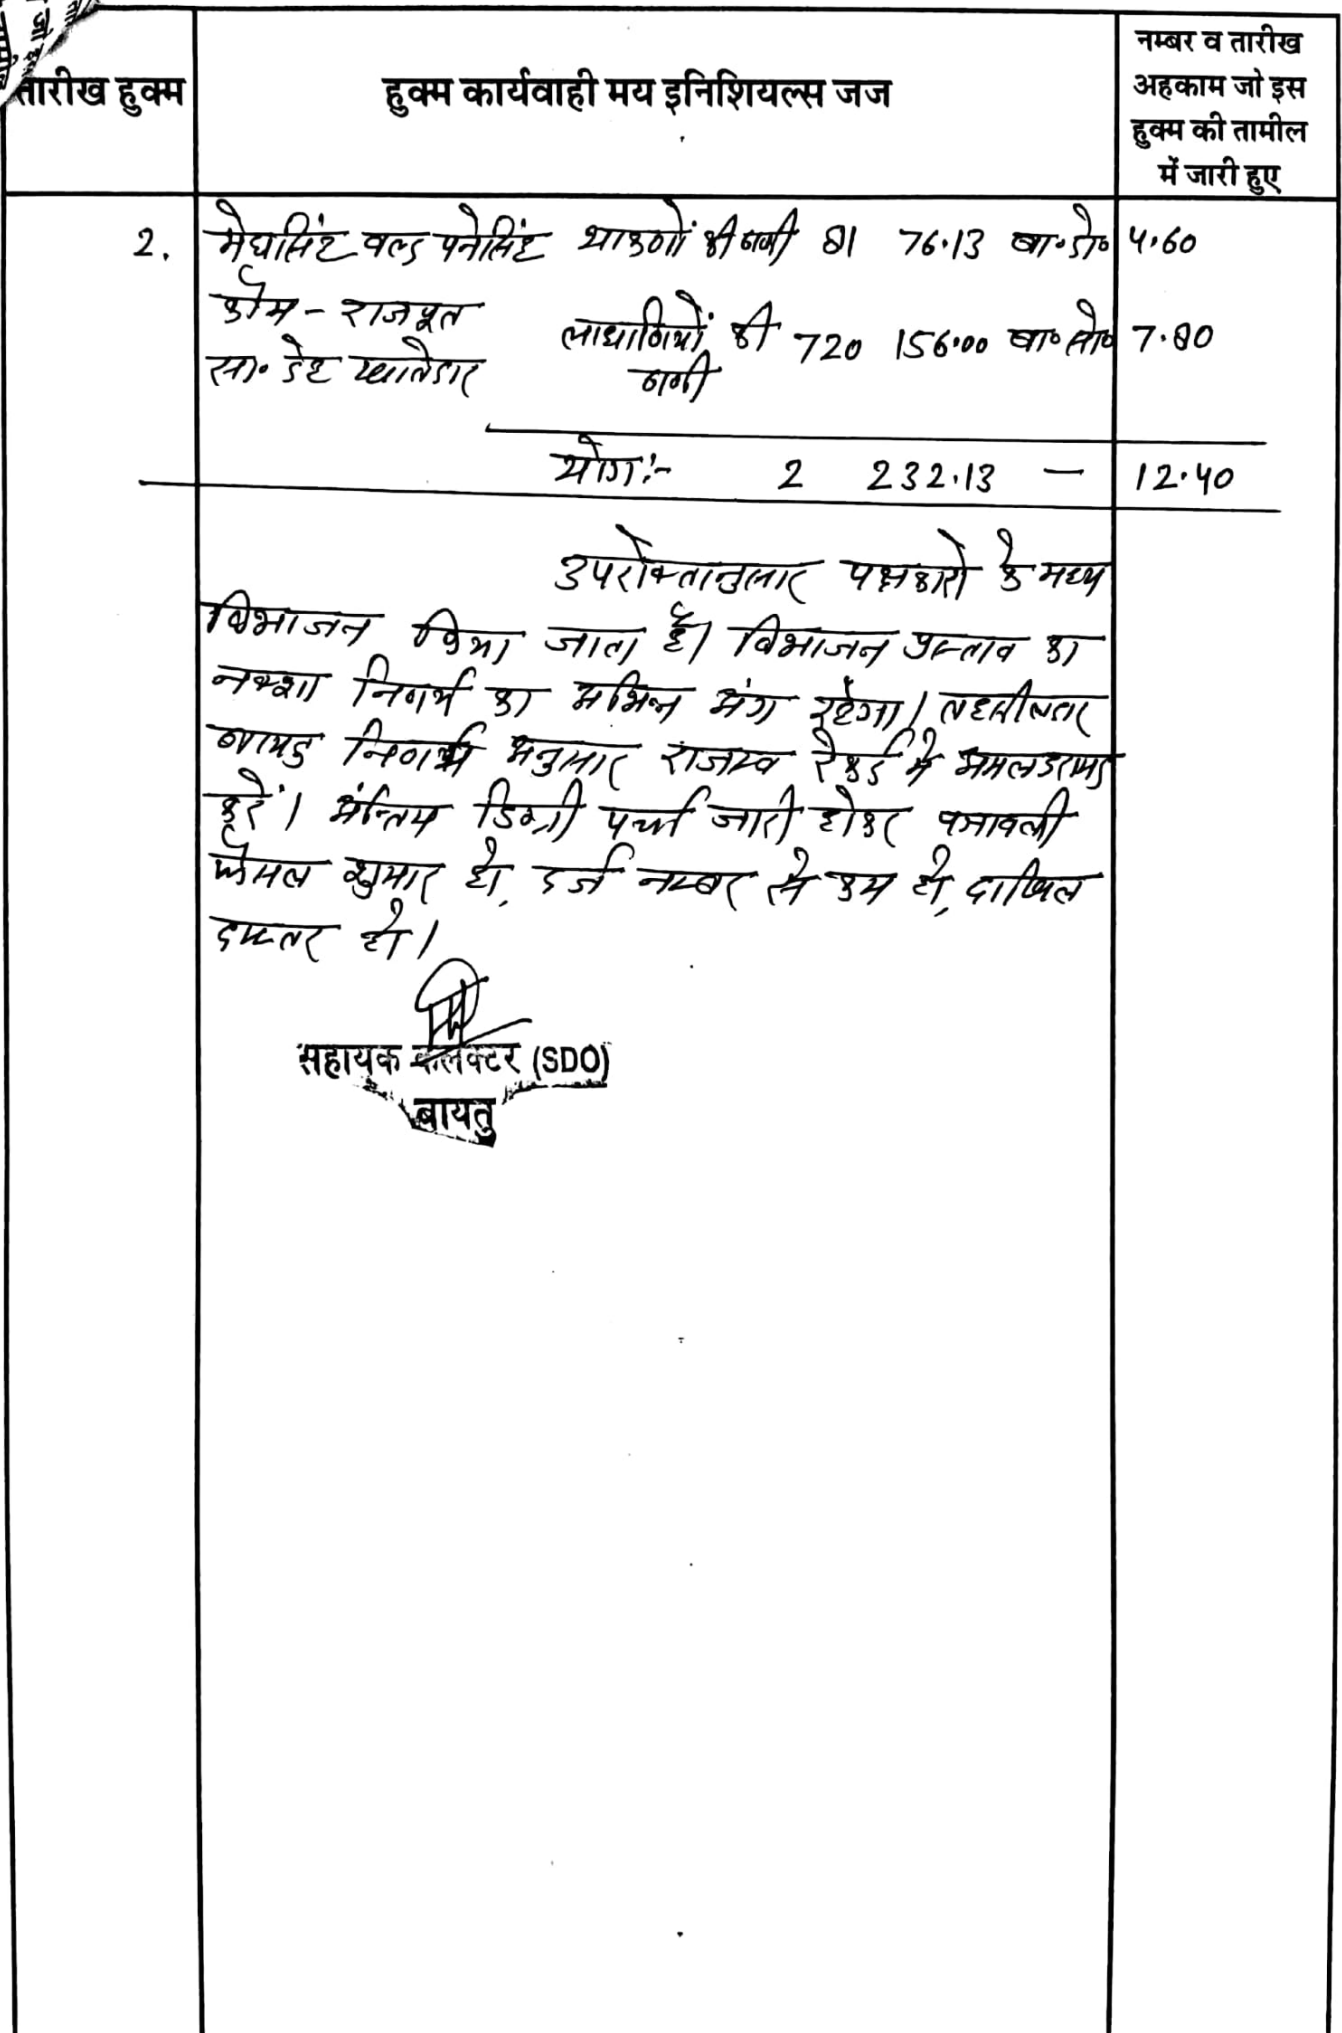 तारीख हुक्म
हुक्म कार्यवाही मय इनिशियल्स जज
नम्बर व तारीख
अहकाम जो इस
हुक्म की तामील
में जारी हुए
2. मेघसिंह वल्द पनेसिंह की ढाणी 81 76.13 बा० 4.60
कौम - राजपूत
की 720 156.00 बा० 7.80
सा० देह खातेदार ढाणी
योग:- 2 232.13 — 12.40
उपरोक्तानुसार पक्षकारो के मध्य
विभाजन किया जाता है। विभाजन प्रस्ताव का
नक्शा निर्णय का अभिन्न अंग रहेगा। तहसीलदार
निर्णय अनुसार राजस्व रेकर्ड में अमलदरामद
करें। अन्तिम डिक्री पर्चा जारी होकर पत्रावली
फैसल शुमार हो, दर्ज नम्बर से कम हो, दाखिल
दफ्तर हो।
सहायक कलेक्टर (SDO)
बायतु